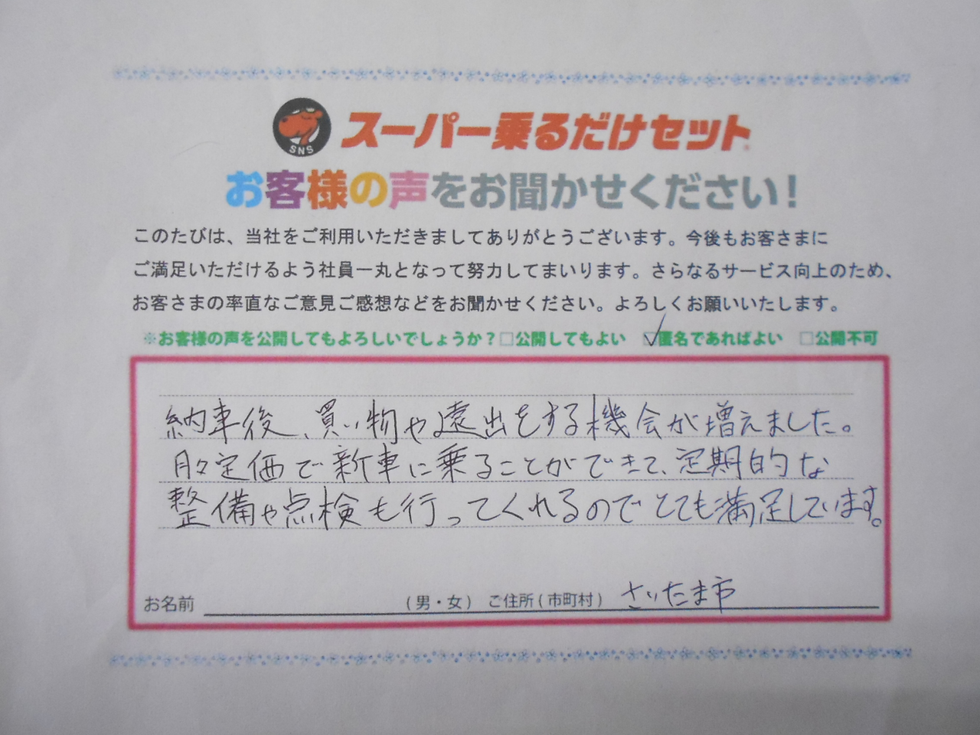 SNS
スーパー乗るだけセット
お客様の声をお聞かせください!
このたびは、当社をご利用いただきましてありがとうございます。今後もお客さまに
ご満足いただけるよう社員一丸となって努力してまいります。さらなるサービス向上のため、
お客さまの率直なご意見ご感想などをお聞かせください。よろしくお願いいたします。
※お客様の声を公開してもよろしいでしょうか?□公開してもよい ☑匿名であればよい □公開不可
納車後、買い物や遠出をする機会が増えました。
月々定価で新車に乗ることができて、定期的な
整備や点検も行ってくれるのでとても満足しています。
お名前 (男・女) ご住所(市町村) さいたま市